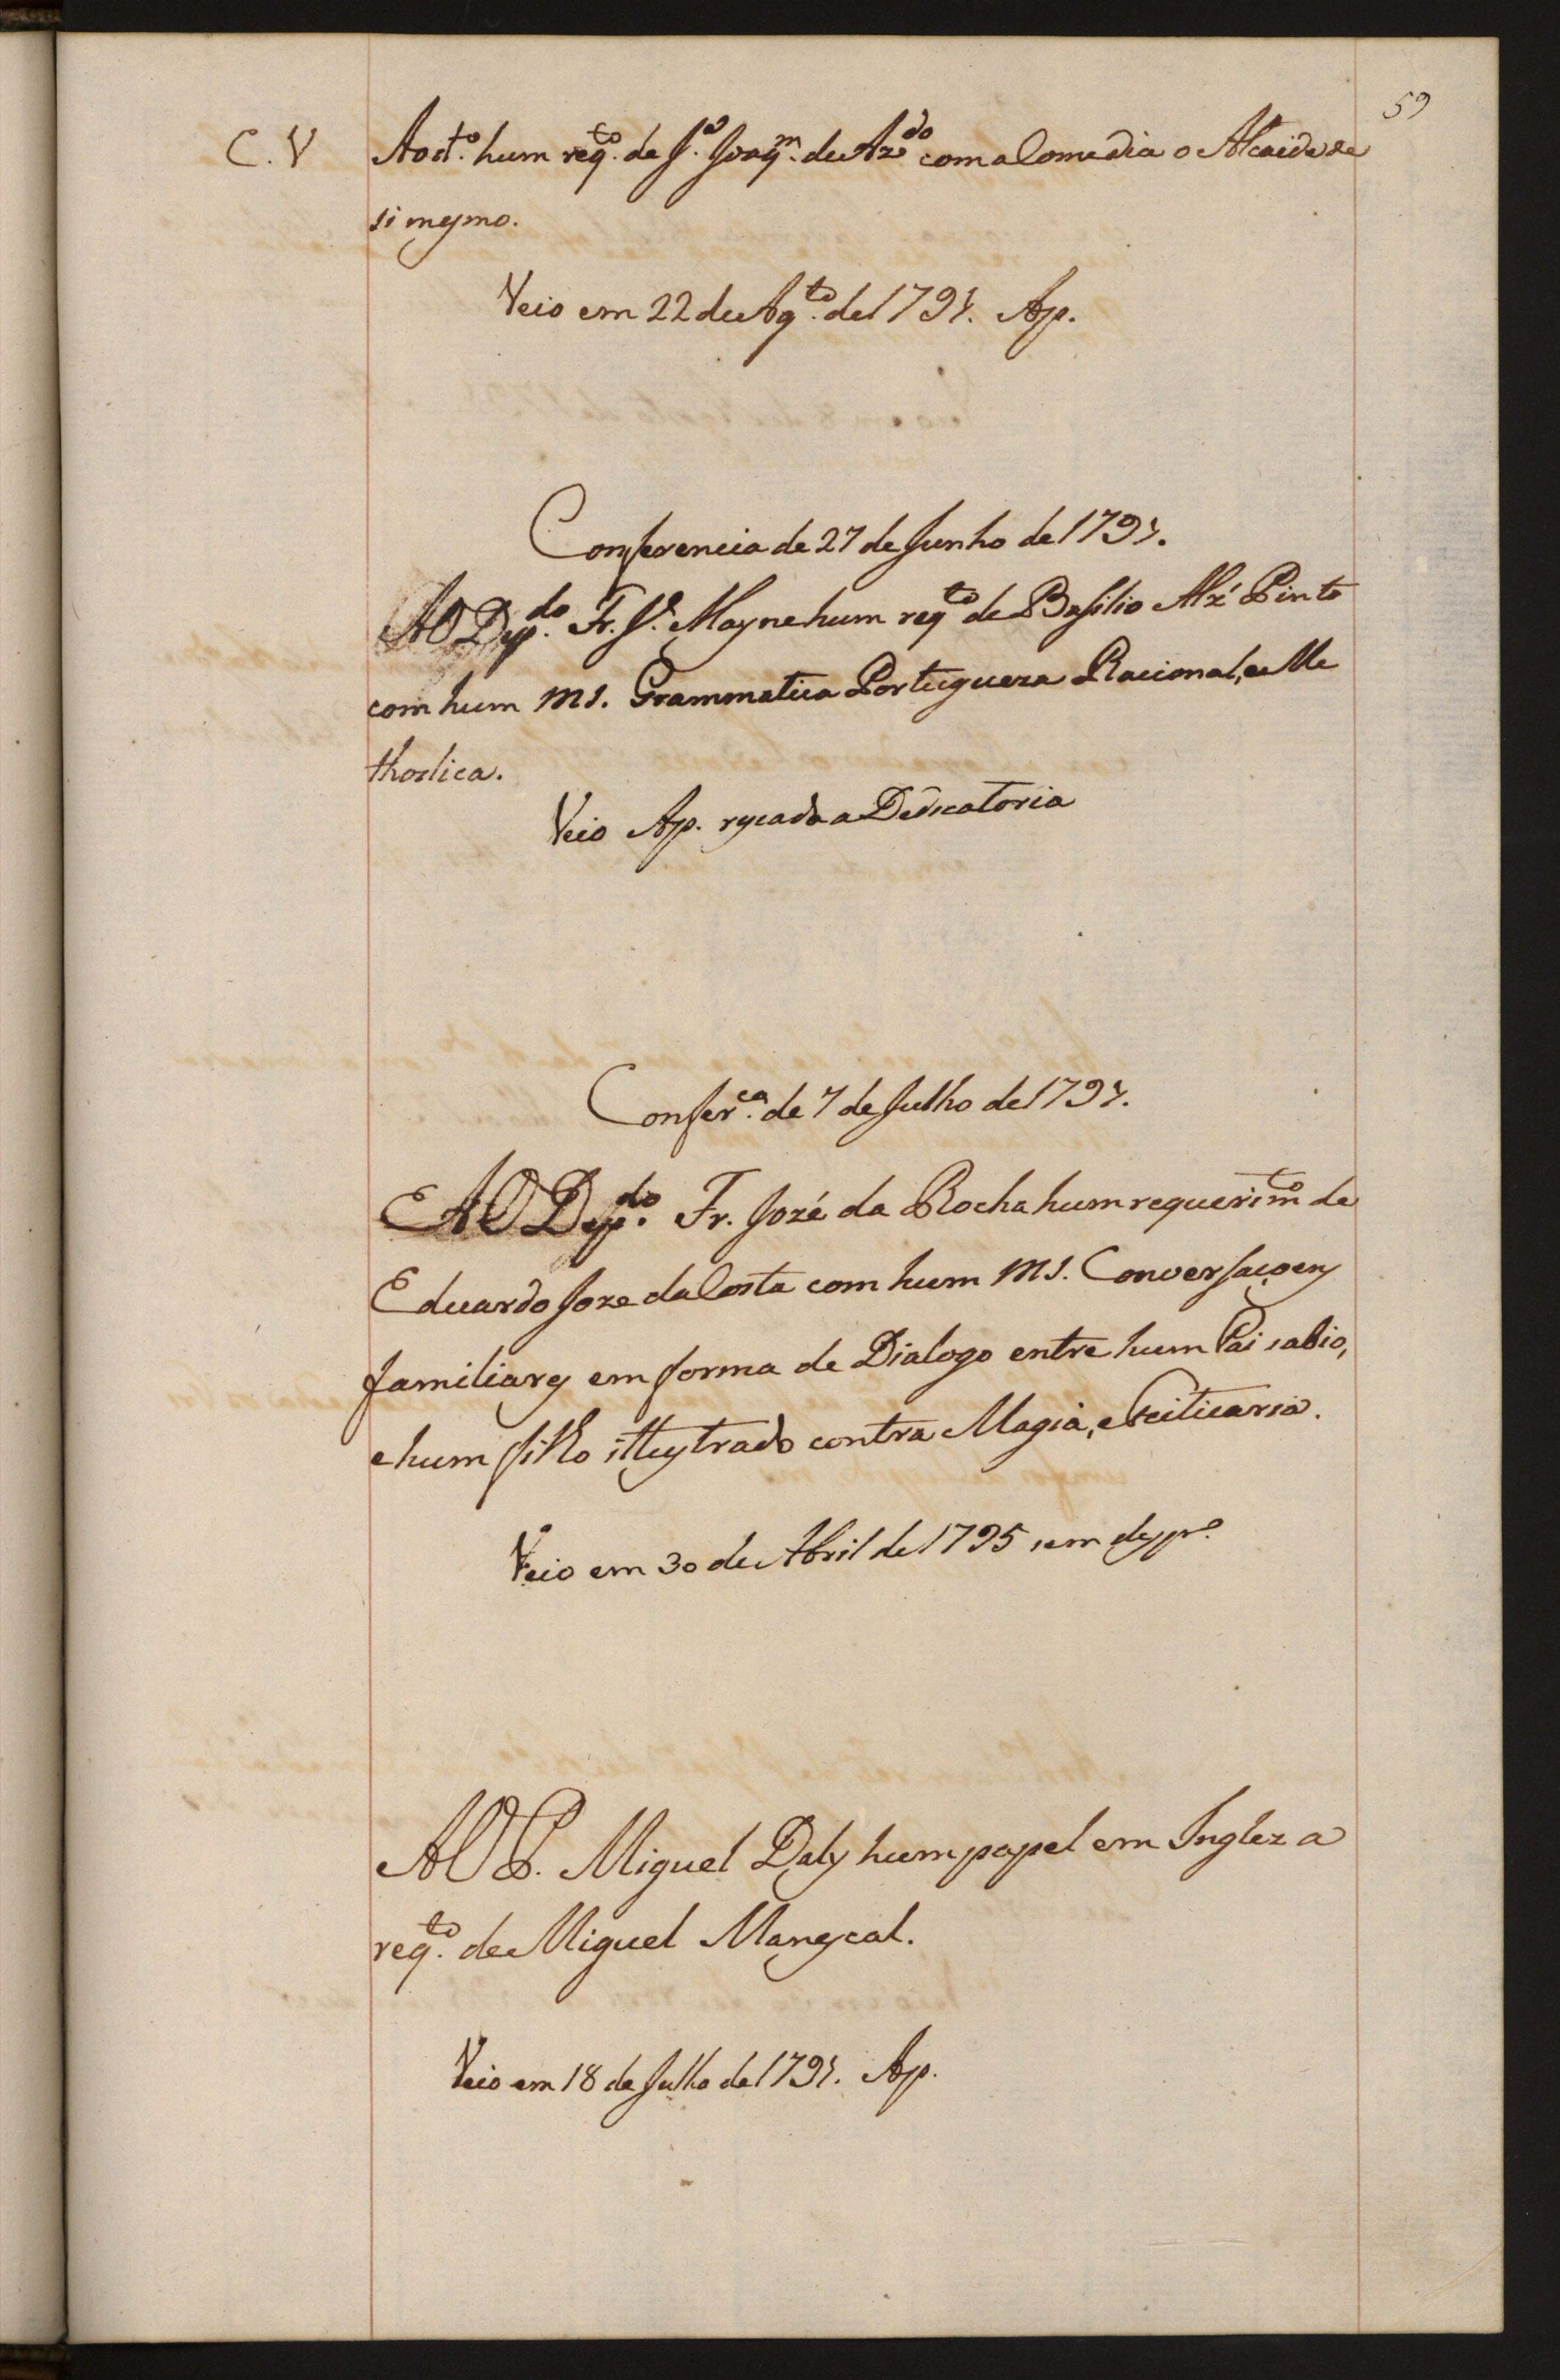 59
C. V Ao d.to hum reg.to de J.e Joaq.m de Az.do com a Comedia o Alcaide de
si mesmo.
Veio em 22 de Ag.to de 1794. Ap.
Conferencia de 27 de Junho de 1794.
AO Dep.do Fr. J.e Mayne hum reg.to de Basilio Alz' Pinto
com hum MS. Grammatica Portugueza Racional, e Me
thodica.
Veio Ap. rescada a Dedicatoria
Confer.ca de 7 de Julho de 1794.
AO Dep.do Fr. Jozé da Rocha hum requerim.to de
Eduardo Joze da Costa com hum MS. Conversaçoens
familiares em forma de Dialogo entre hum Pai sabio,
e hum filho illustrado contra Magia, e Feiticaria.
Veio em 30 de Abril de 1795 sem desp.o
AO P. Miguel Daly hum papel em Inglez a
req.to de Miguel Manescal.
Veio em 18 de Julho de 1794. Ap.